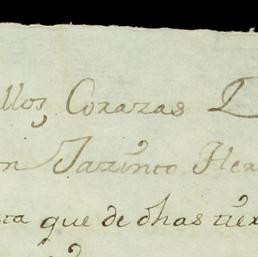 llos Corazas D
n Jazinto Her
ta que de dhas tier